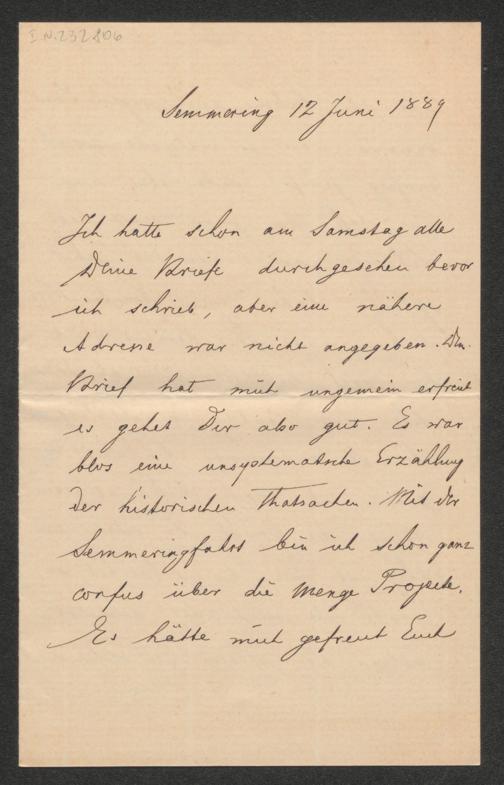 I.N. 232.806
Semmering 12 Juni 1889
Ich hatte schon am Samstag alle
Deine Briefe durchgesehen bevor
ich schrieb, aber eine nähere
Adresse war nicht angegeben. Dein
Brief hat mich ungemein erfreut
es gehet Dir also gut. Es war
blos eine unsystematische Erzählung
der historischen Thatsachen. Mit der
Semmeringfahrt bin ich schon ganz
confus über die Menge Projekte.
Es hätte mich gefreut Euch